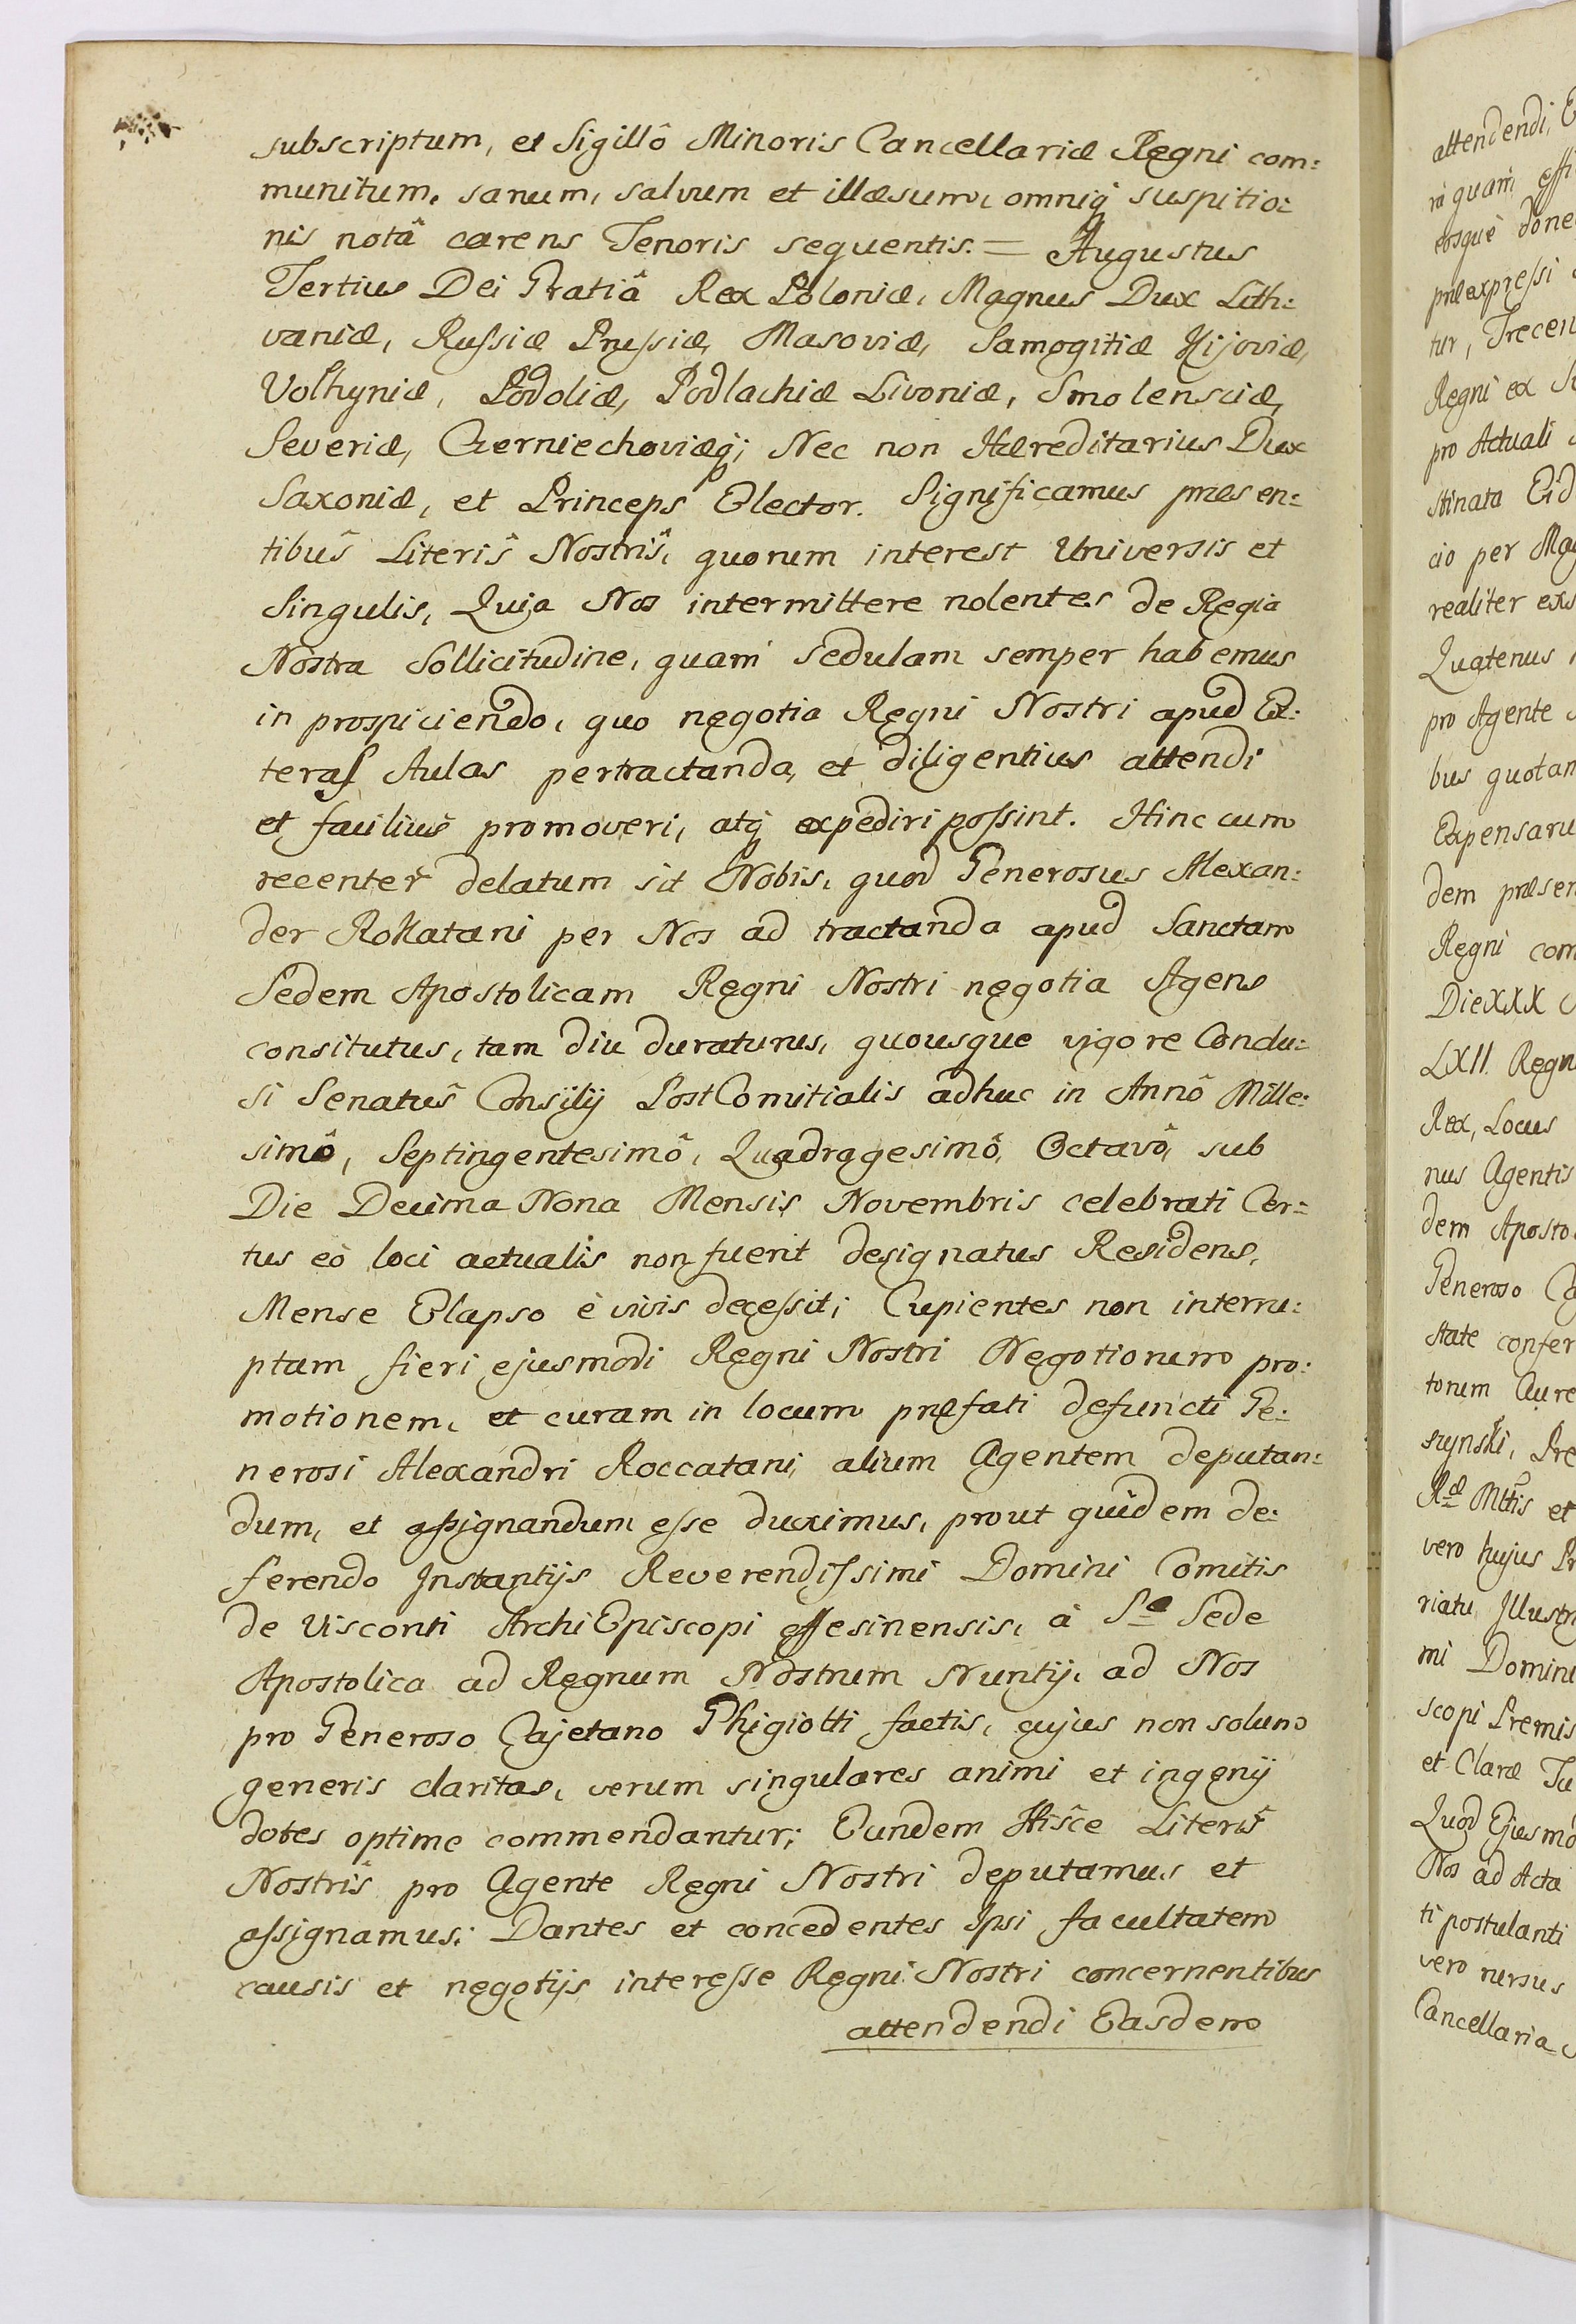 subscriptum, et Sigillô Minoris Cancellariæ Regni com:
munitum, sanum, salvum et illæsum, omniq́ suspitio:
nis notâ carens Tenoris sequentis. = Augustus
Tertius Dei Gratiâ Rex Poloniæ, Magnus Dux Lith:
vaniæ, Rußiæ Prußiæ, Masoviæ, Samogitiæ Kijoviæ,
Volhyniæ, Podoliæ, Podlachiæ Livoniæ, Smolensciæ,
Severiæ, Czerniechoviæq́; Nec non Hæreditarius Dux
Saxoniæ, et Princeps Elector. Significamus præsen:
tibus̃ Literis̃ Nostris̃, quorum interest Universis et
Singulis, Quia Nos intermittere nolentes de Regia
Nostra Sollicitudine, quam sedulam semper habemus
in prospiciendo, quo negotia Regni Nostri apud Ex:
teras Aulas pertractanda, et diligentius attendi
et facilius promoveri, atq́ expediri poßint. Hinc cum
recenter delatum sit Nobis, quod Generosus Alexan:
der Rokatani per Nos ad tractanda apud Sanctam
Sedem Apostolicam Regni Nostri negotia Agens
consitutus, tam diu duraturus, quousque vigore Conclu:
si Senatûs Consilij PostComitialis adhuc in Annô Mille:
simô, Septingentesimô, Quadragesimô, Octavô, sub
Die Decima Nona Mensis Novembris celebrati Cer:
tus eò loci actualis non fuerit designatus Residens,
Mense Elapso è vivis deceßit; Cupientes non interru:
ptam fieri ejusmodi Regni Nostri Negotiorum pro:
motionem, et curam in locum præfati defuncti Ge:
nerosi Alexandri Roccatani, alium Agentem deputan:
dum, et aßignandum eße duximus, prout quidem de:
ferendo Instantijs Reverendißimi Domini Comitis
de Visconti ArchiEpiscopi Effesinensis, à Sa Sede
Apostolica ad Regnum Nostrum Nuntij, ad Nos
pro Generoso Cajetano Ghigiotti factis, cujus non solum
generis claritas, verum singulares animi et ingenij
dotes optime commendantur; Eundem Hisce Literis̃
Nostris̃ pro Agente Regni Nostri deputamus et
aßignamus: Dantes et concedentes Ipsi facultatem
causis et negotijs intereße Regni Nostri concernentibus
attendendi Easdem
attendendi, E
ra quam effi
eosque done
præexpreßi
tur, Trecen
Regni ex
pro Actuali
stinata Eid
cio per Mag
realiter exs
Quatenus
pro Agente
bus quotan
Expensaru
dem præsen
Regni com
Die XXX
LXII. Regn
Rex, Locus
nus Agentis
dem Aposto
Generoso Ca
state confer
torum Aure
szynski, Pre
Ræ Mttis et
vero hujus Pr
riatu Illustr
mi Domini
scopi Premis
et Claræ Tu
Quod Ejusmo
Nos ad Acta
ti postulanti
vero rursus
Cancellaria